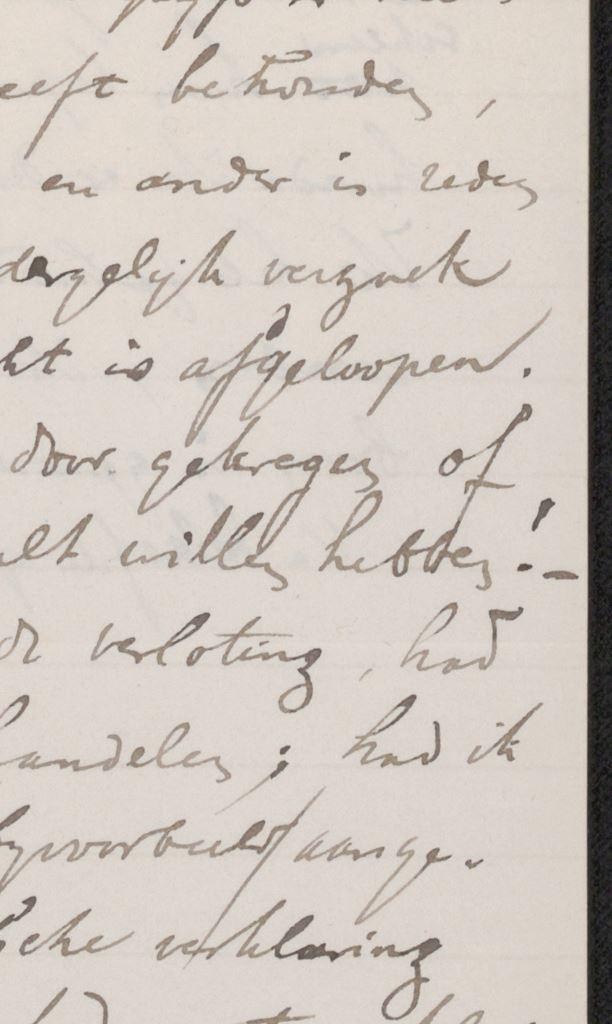 eeft behoorden,
en ander is reden
dergelijk verzoek
cht is afgeloopen.
door gekregen of
ult willen hebben! -
de verloting, had
handelen; had ik
bijvoorbeeld aange-
sche verklaring